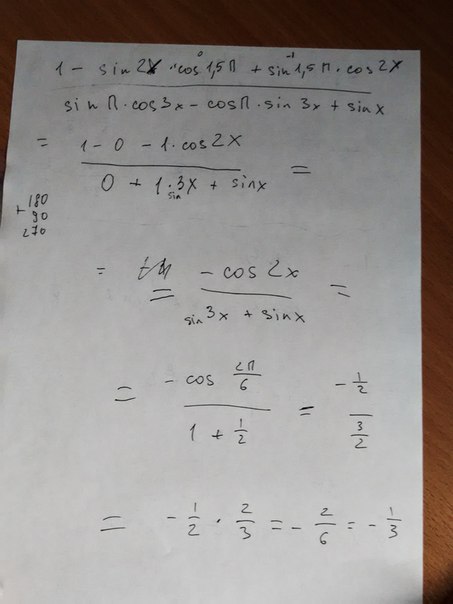 1 - sin2x · cos1,5π + sin1,5π · cos2x
0 -1
sinπ · cos3x - cosπ · sin3x + sinx
= 1 - 0 - 1 · cos2x
0 + 1 · sin3x + sinx =
180
+ 90
270
= = - cos2x =
sin3x + sinx
= - cos 2π/6
1 + 1/2
= - 1/2
3/2
= - 1/2 · 2/3 = - 2/6 = - 1/3